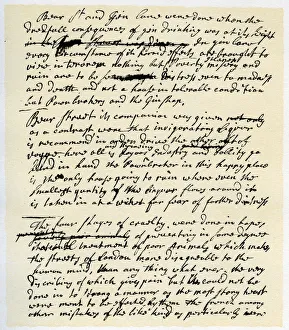 Beer St and Gin lane were done when the
dreadfull consequences of gin drinking was at its hight
In gin lane
every circumstance of its horrid effects are brought to
view in terorem nothing but Poverty misery and
ruin are to be seen Distress even to madness
and death, and not a house in tolerable condition
but Pawnbrokers and the Ginshop.
Beer street its companion was given
as a contrast, were that invigorating liquor
is recommend in order drive the other out of
vogue here all is joyous and thriveing
go hand in hand the Pawnbroker in this happy place
is the only house going to ruin where even the
smallest quantity of the liquor flows around it
is taken in at a wicket for fear of further distress
The four stages of cruelty, were done in hopes
of preventing in some degree
treatment of poor Animals which make
the streets of London more disagreable to the
human mind, than any thing what ever, the very
discribing of which gives pain but it could not be
done in so strong a manner as the most stony heart
were ment to be effected by them the french among
other mistakes of the like kind as particularly were